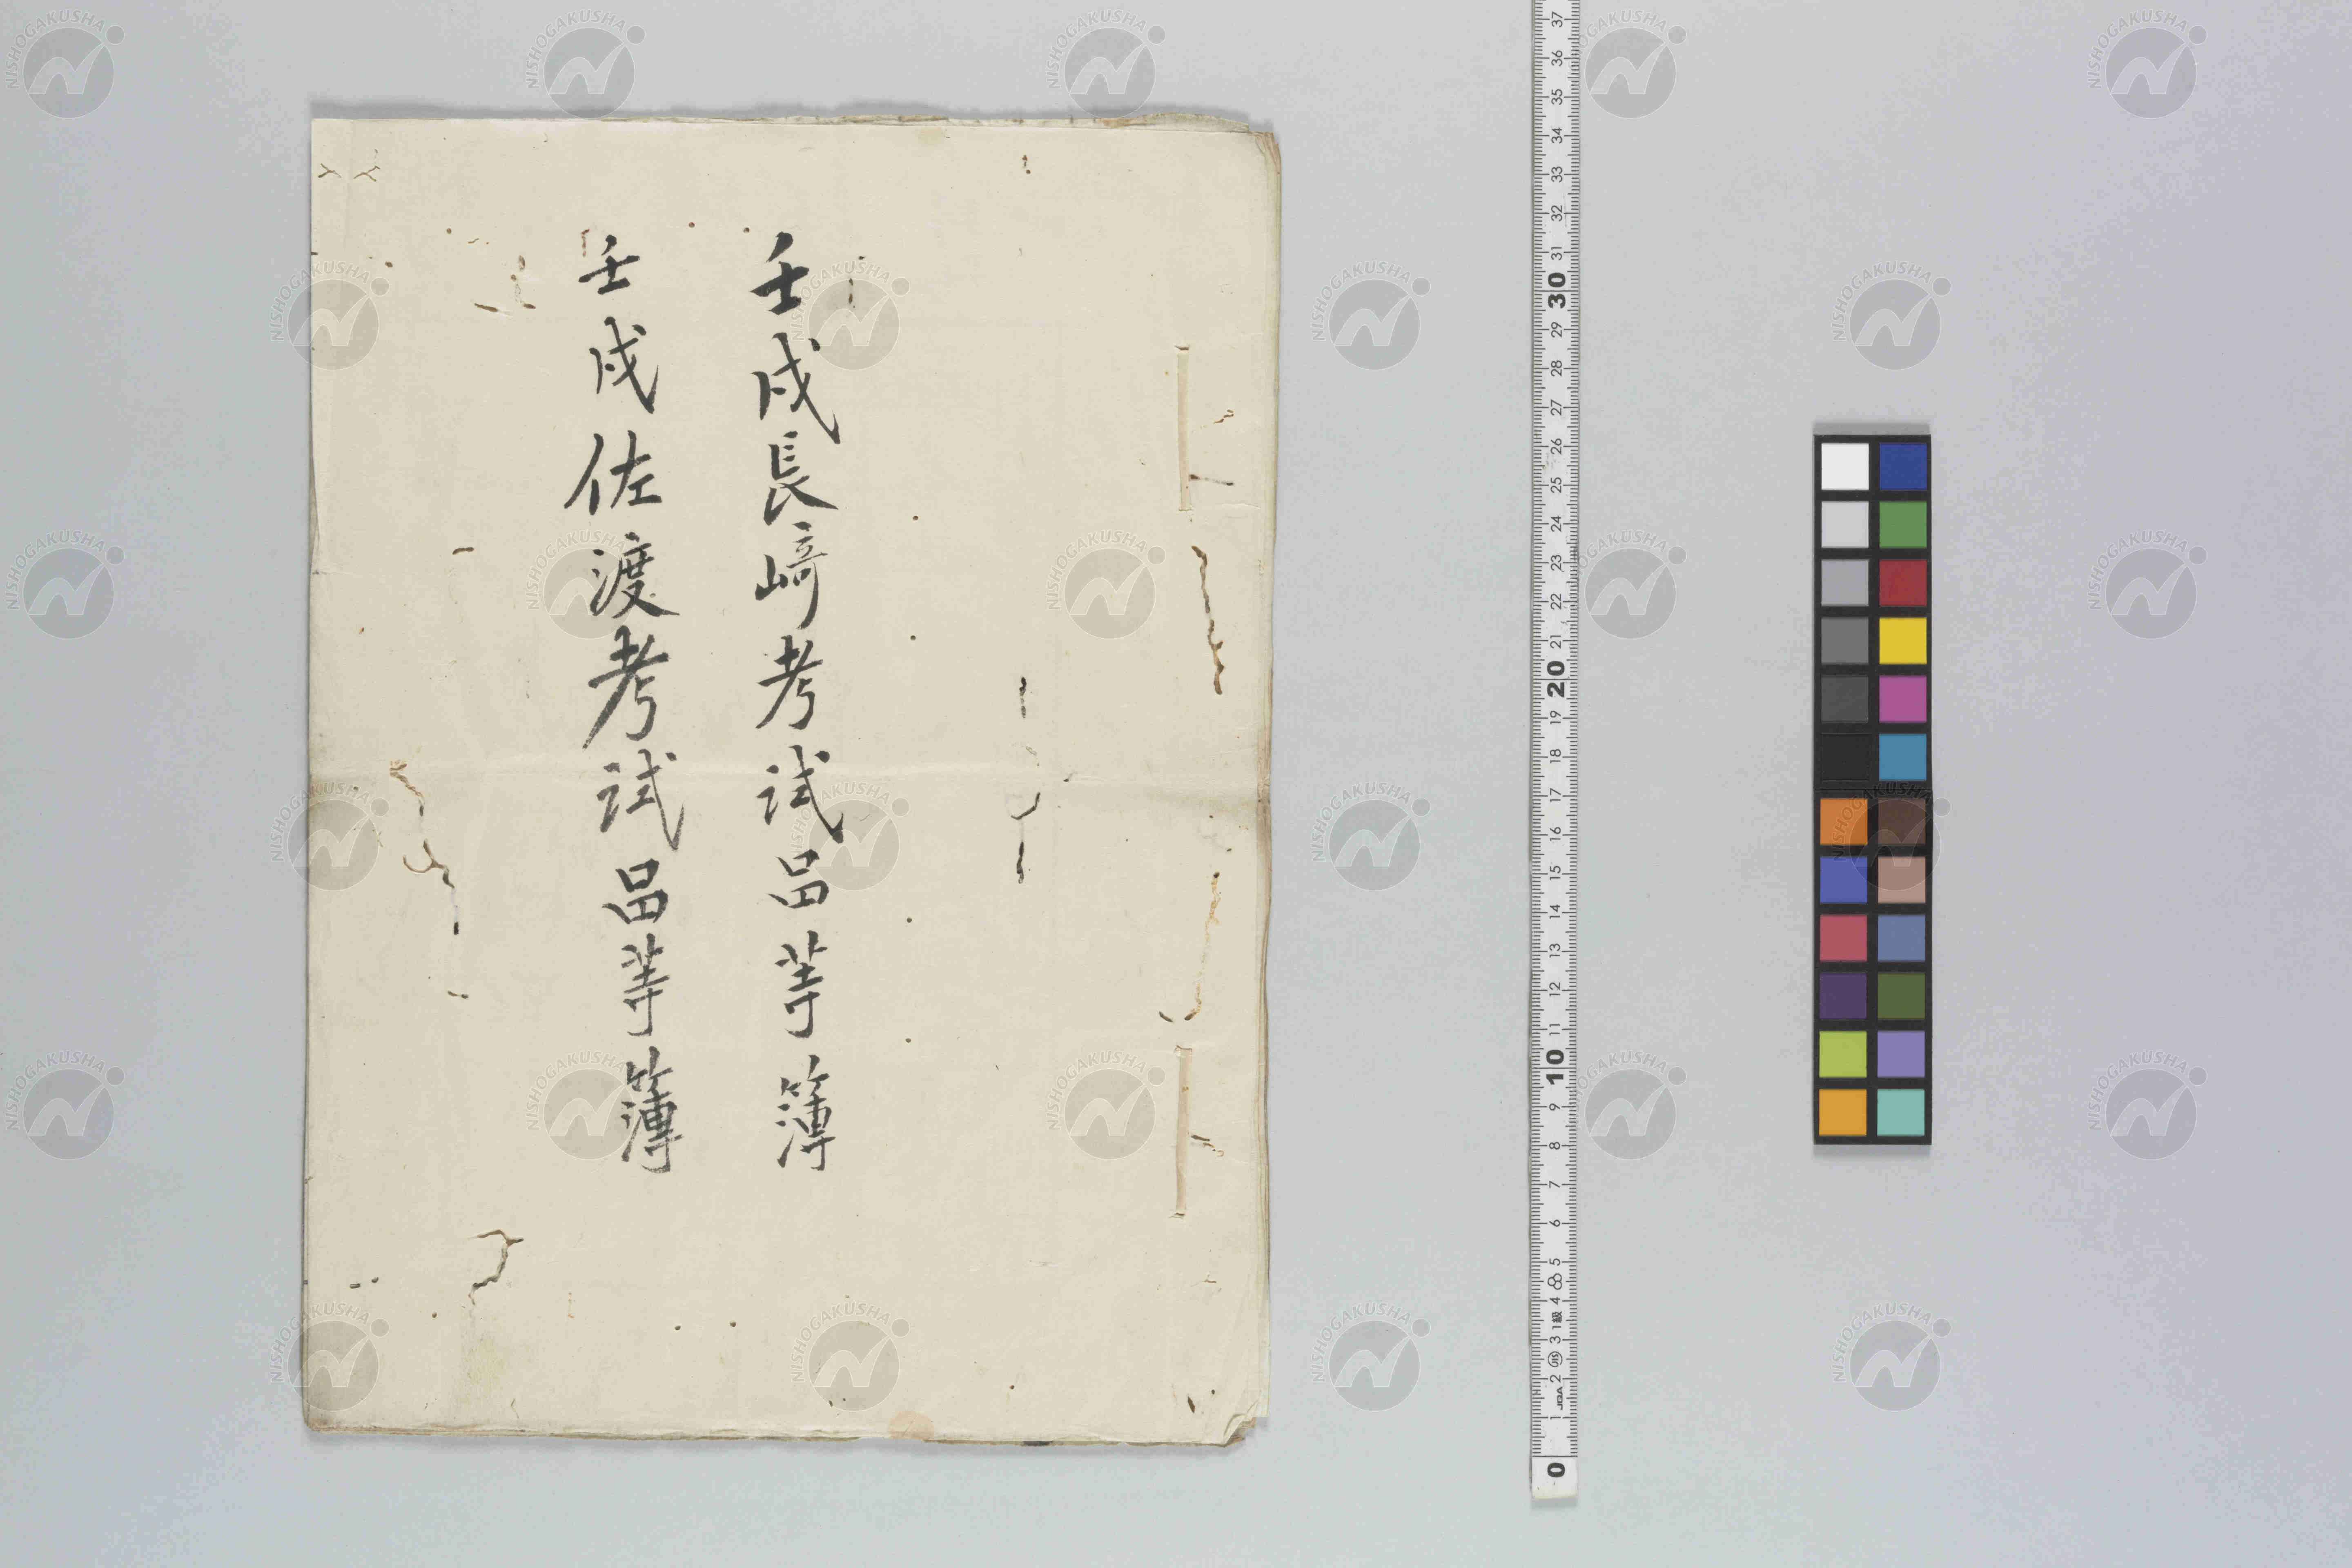 壬戌長﨑考試品等簿
壬戌佐渡考試品等簿